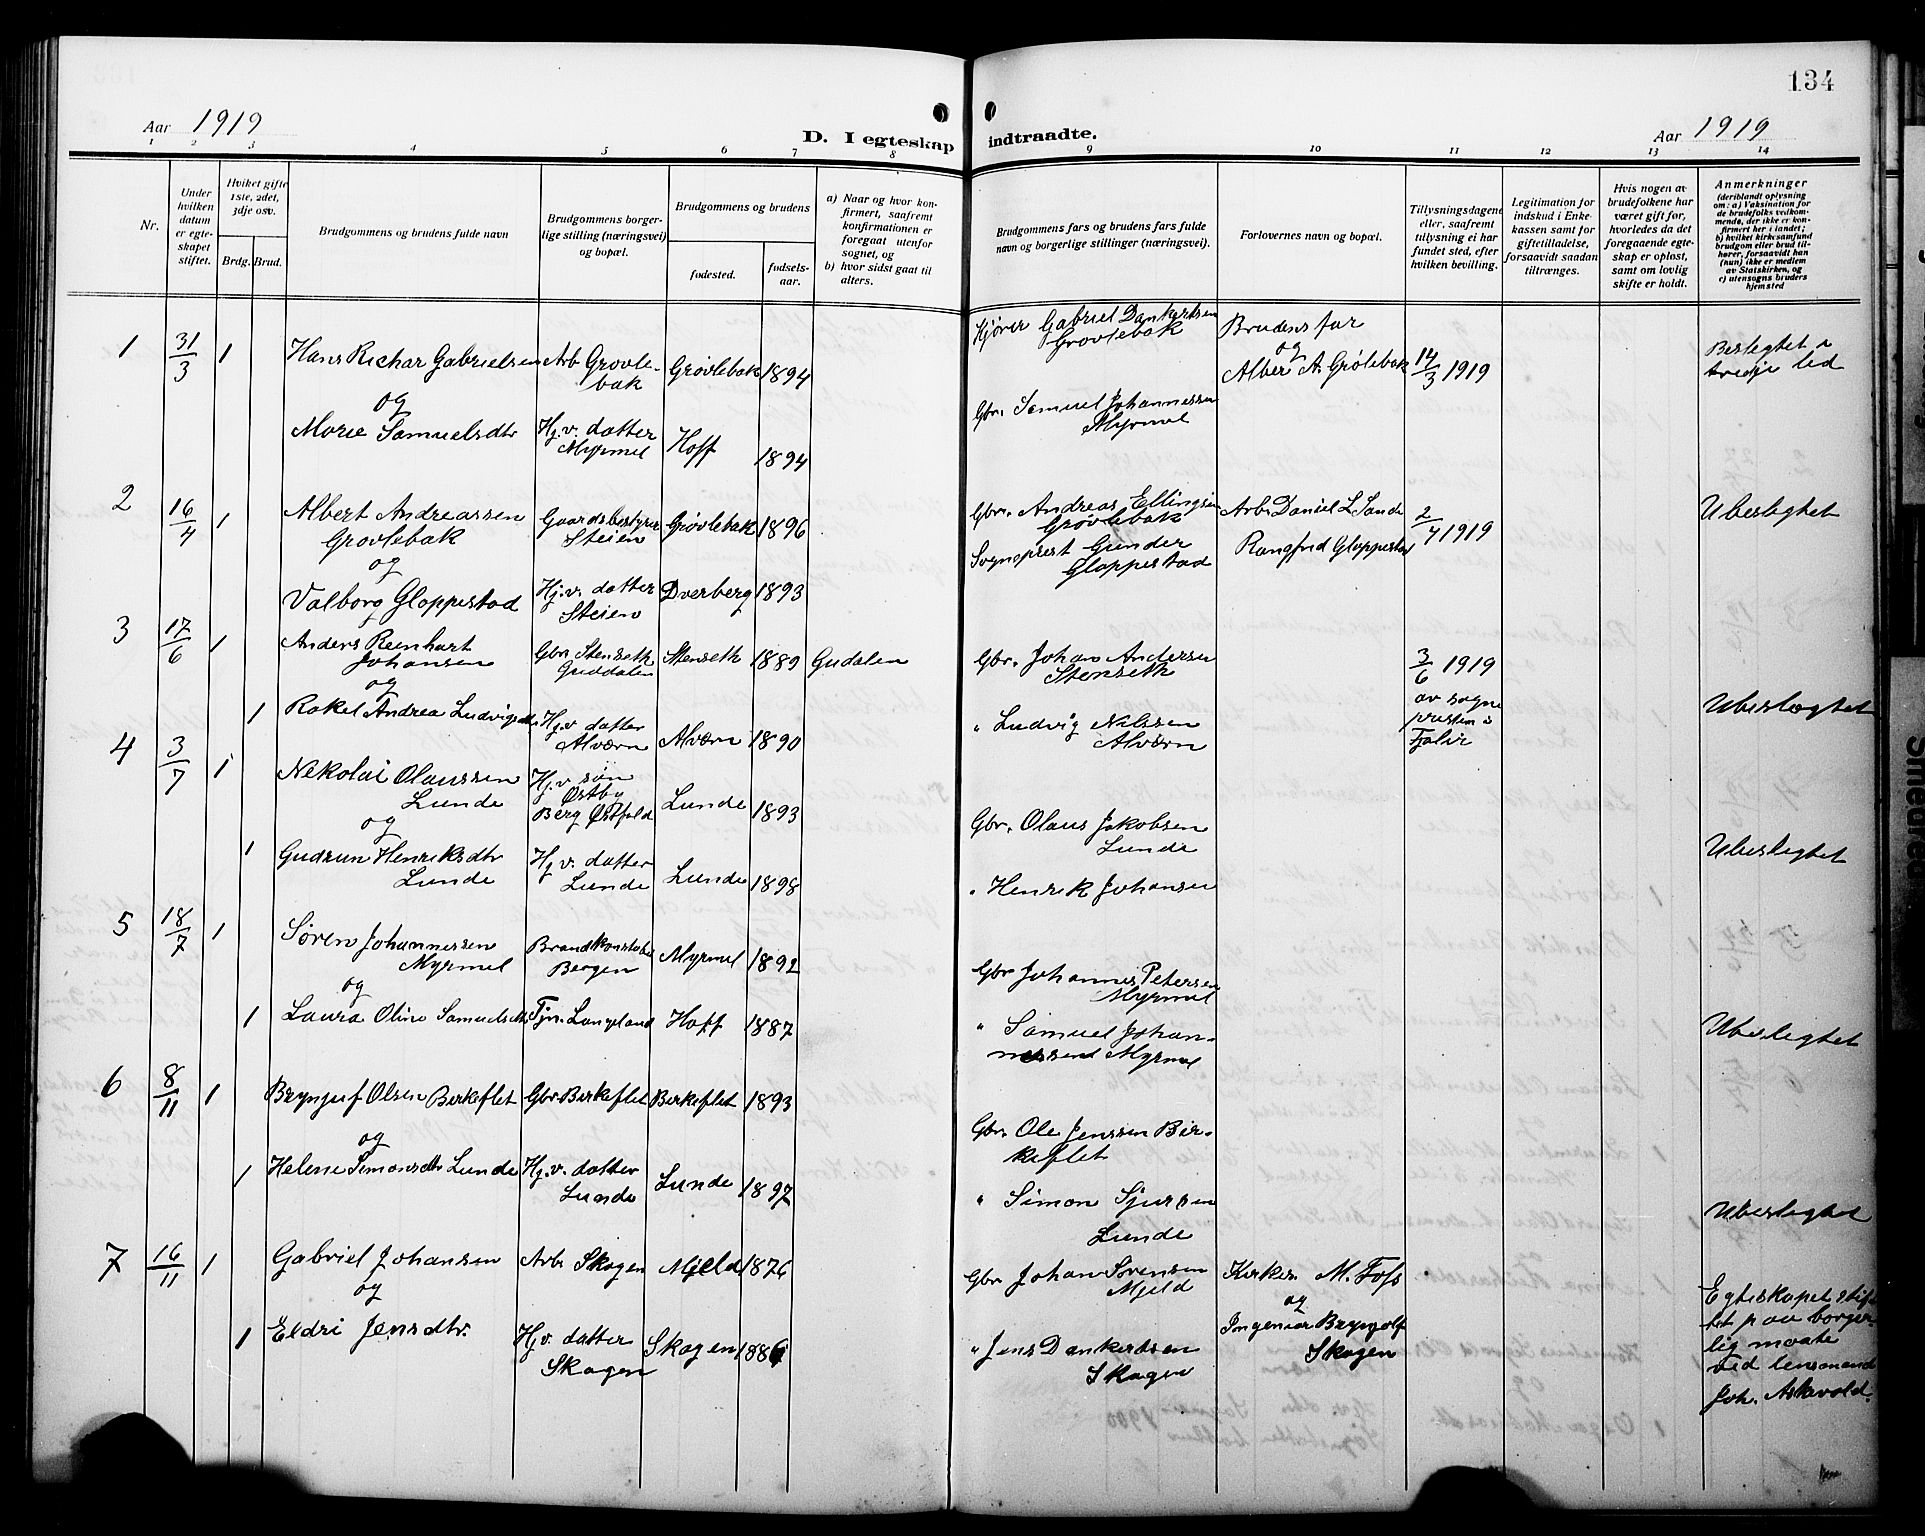 134
Aar 1919
D. I egteskap indtraadte.
Aar 1919
1 2 3 4 5 6 7 8 9 10 11 12 13 14
Nr.
Under hvilken datum er egteskapet stiftet.
Hviket gifte 1ste, 2det, 3dje osv.
Brdg. Brud.
Brudgommens og brudens fulde navn
Brudgommens borgerlige stilling (næringsvei) og bopæl.
Brudgommens og brudens
fødested.
fødselsaar.
a) Naar og hvor konfirmert, saafremt konfirmationen er foregaat utenfor sognet, og
b) hvor sidst gaat til alters.
Brudgommens fars og brudens fars fulde navn og borgerlige stillinger (næringsvei).
Forlovernes navn og bopæl.
Tillysningsdagene eller, saafremt tillysning ei har fundet sted, efter hvilken bevilling.
Legitimation for indskud i Enkekassen samt for giftetilladelse, forsaavidt saadan tiltrænges.
Hvis nogen av brudefolkene har været gift før, hvorledes da det foregaaende egteskap er opløst, samt om lovlig skifte er holdt.
Anmerkninger
(deriblandt oplysning om: a) Vaksination for de brudefolks vedkommende, der ikke er konfirmert her i landet; b) hvilket kirkesamfund brudgom eller brud tilhører, forsaavidt han (hun) ikke er medlem av Statskirken, og c) utensogns bruders hjemsted
1 31/3 1 Hans Richar Gabrielsen Arb Grøvlebak Grøvlebak 1894
Gabriel Dankertsen Grøvlebak
Brudens far og Alber A. Grølebak
14/3 1919
Beslegtet i tredje led
og
Marie Samuelsdtr Hj. v. datter Myrmel Hoff 1894
Gbr. Samuel Johannessen Myrmel
2 16/4 1 Albert Andreassen Grøvlebak Gaardsbestyrer Steien Grøvlebak 1896
Gbr. Andreas Ellingsen Grøvlebak
Arb. Daniel L Sande
2/4 1919
Ubeslegtet
og
Valborg Gloppestad Hj. v. datter Steien Dverberg 1893
Sogneprest Gunder Gloppestad
3 17/6 1 Anders Reinhart Johansen Gbr Stenseth Guddalen Stenseth 1889 Gudalen
Gbr. Johan Andersen Stenseth
3/6 1919 av sogne presten i Fjaler
og
1 Rakel Andrea Ludvigsdtr Hj. v. datter Alværn Alværn 1890
" Ludvig Nilssen Alværn
Ubeslægtet
4 3/7 1 Nekolai Olaussen Lunde Hj. v. søn Østby Berg Østfold Lunde 1893
Gbr. Olaus Jakobsen Lunde
og
1 Gudrun Henriksdtr Lunde Hj v. datter Lunde Lunde 1898
" Henrik Johansen
Ubeslegtet
5 18/7 1 Søren Johannessen Myrmel Brandkonstabel Bergen Myrmel 1892
Gbr Johannes Petersen Myrmel
og
1 Laura Oline Samuelsdtr Tjn. Langeland Hoff 1887
" Samuel Johannessen Myrmel
Ubeslegtet
6 8/11 1 Brynjulf Olsen Birkeflet Gbr Birkeflet Birkeflet 1893
Gbr. Ole Jenssen Birkeflet
og
1 Helene Simonsdtr Lunde Hj. v. datter Lunde Lunde 1897
" Simon Sjursen Lunde
Ubeslegtet
7 16/11 1 Gabriel Johansen Arb Skogen Mjeld 1876
Gbr Johan Sørensen Mjeld
Kirkes. M. Foss og Ingeniør Brynjolf Skogen
og
1 Eldri Jensdtr. Hj. v. datter Skogen Skogen 1886
" Jens Dankertsen Skogen
Egteskapet stiftet paa borgerlig maate ved lensmand Joh. Askvold.